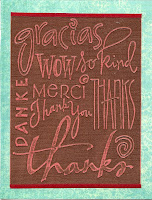 gracias
WOW so kind
DANKE
MERCI
Thank You
THANKS
thanks